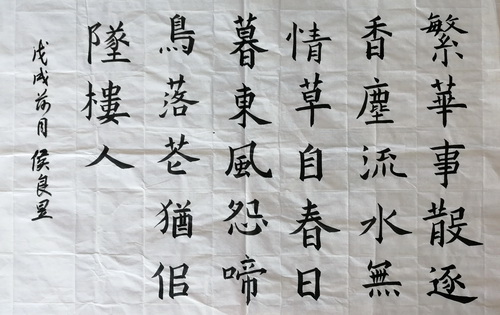 繁華事散逐
香塵流水無
情草自春日
暮東風怨啼
鳥落芲猶佀
墜樓人
戊戌 月 侯良